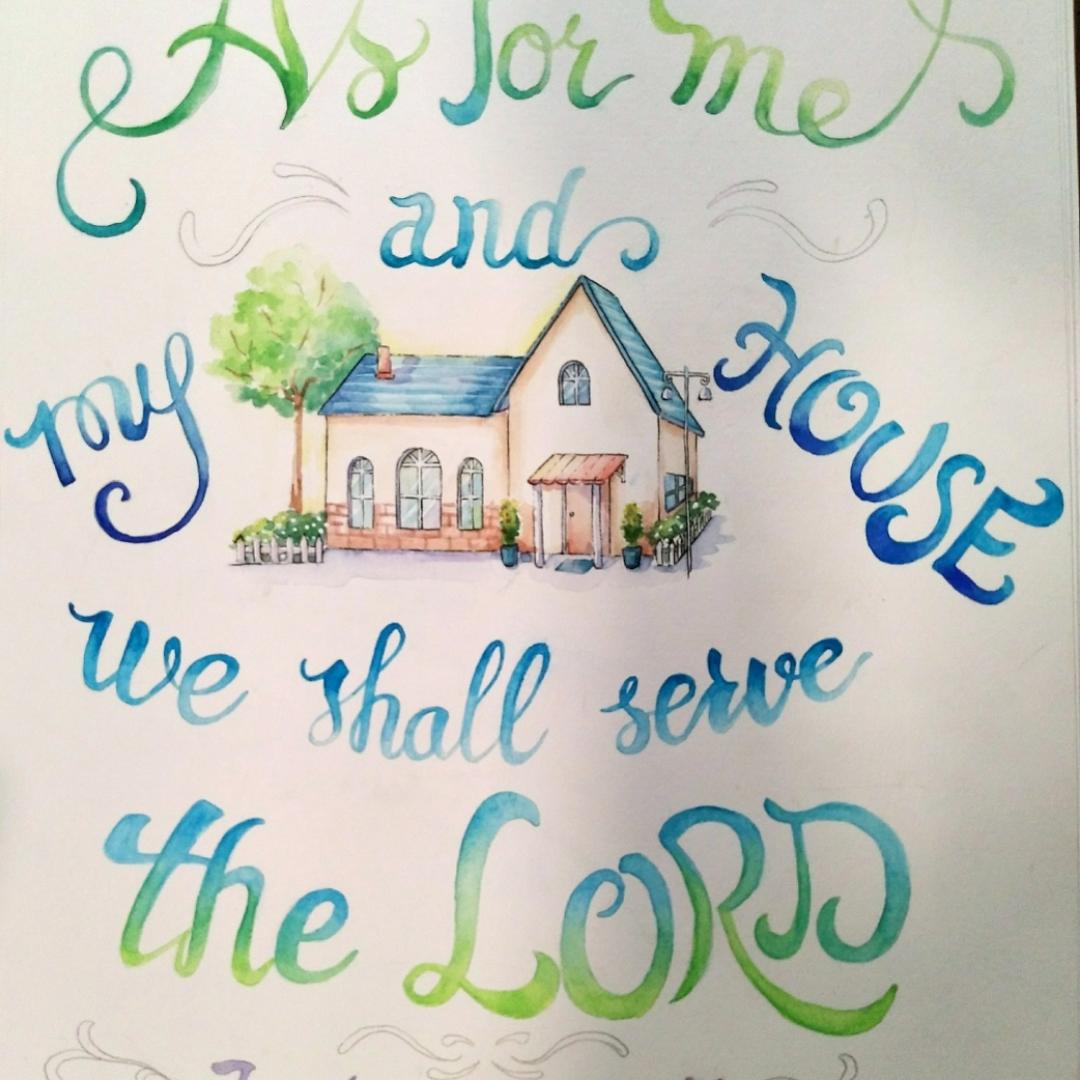 As for me
and
my HOUSE
we shall serve
the LORD